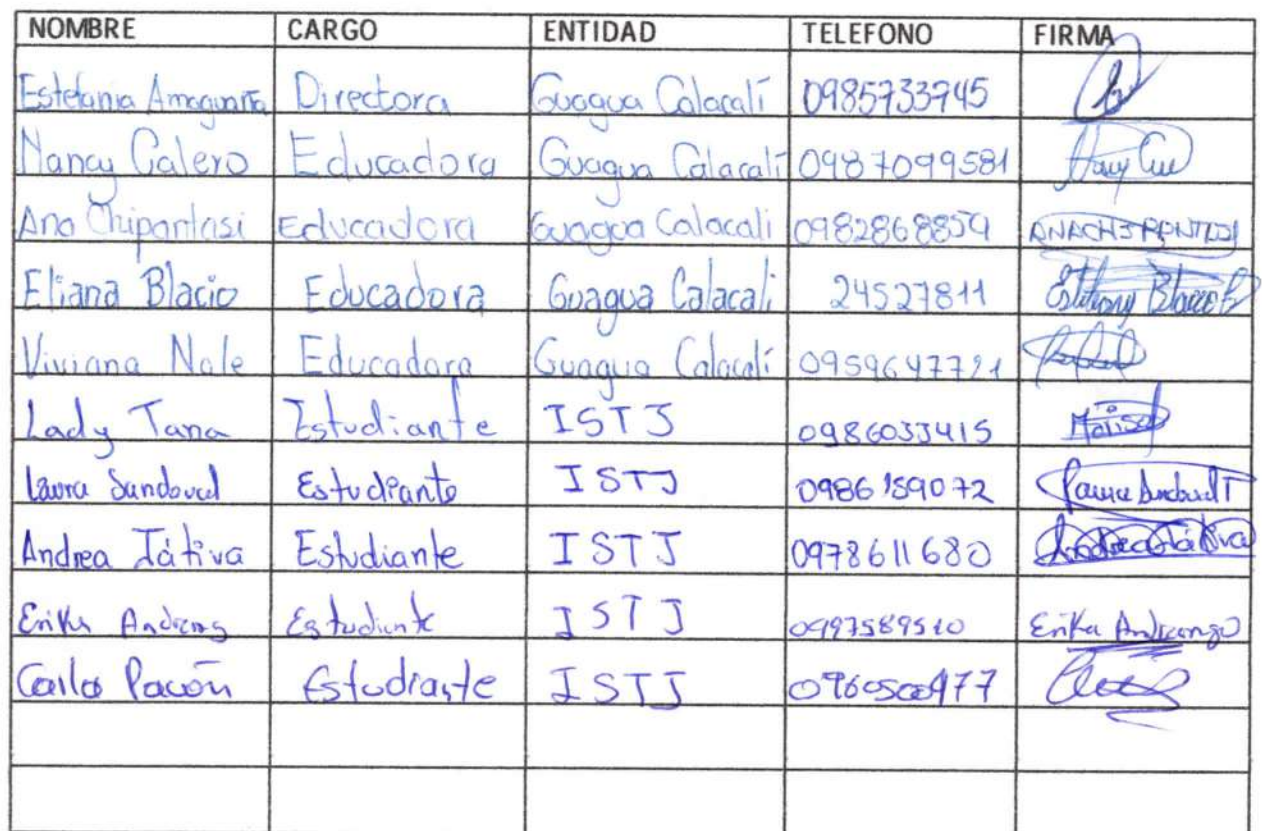 NOMBRE CARGO ENTIDAD TELEFONO FIRMA
Estefania Amaguaña Directora Guagua Calacalí 0985733745
Nancy Calero Educadora Guagua Calacalí 0987099581
Ana Chipantasi Educadora Guagua Calacali 0982868859
Eliana Blacio Educadora Guagua Calacali 24527811
Viviana Nale Educadora Guagua Calacalí 0959647721
Lady Tana Estudiante ISTJ 0986033415
Laura Sandoval Estudiante ISTJ 0986159072 Laura Sandoval T
Andrea Játiva Estudiante ISTJ 0978611680 Andrea Játiva
Erika Estudiante ISTJ 0997589510 Erika Andrango
Pavón Estudiante ISTJ